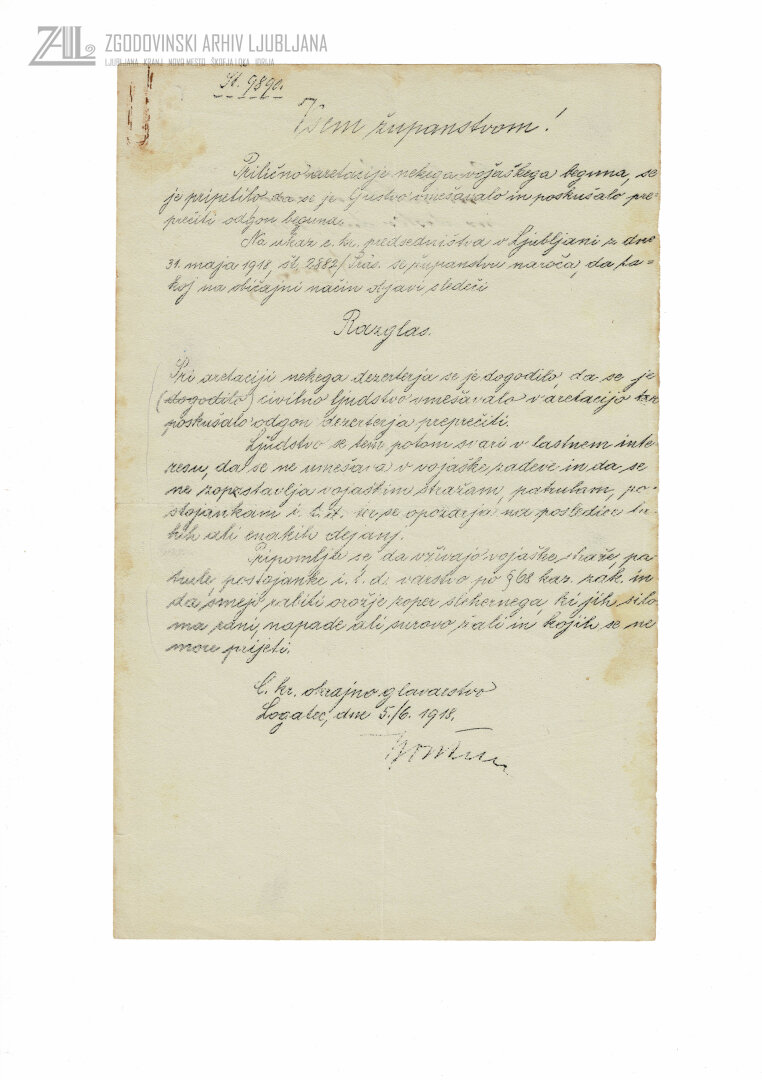 ZAL ZGODOVINSKI ARHIV LJUBLJANA
LJUBLJANA, KRANJ, NOVO MESTO, ŠKOFJA LOKA, IDRIJA
Št. 9890.
Vsem županstvom!
Prilično aretacije nekega vojaškega beguna, se
je pripetilo da se je ljustvo vmešavalo in poskušalo pre-
prečiti odgon beguna.
Na ukaz c. kr. predsedništva v Ljubljani z dne
31. maja 1918, št. 2882/Präs. se županstvu naroča, da ta-
koj na običajni način objavi sledeči
Razglas.
Pri aretaciji nekega dezerterja se je dogodilo, da se je
(dogodilo) civilno ljudstvo vmešavalo v aretacijo ter
poskušalo odgon dezerterja preprečiti.
Ljudstvo se tem potom svari v lastnem inte-
resu, da se ne umešava v vojaške zadeve in da se
ne zoperstavlja vojaškim stražam, patrulam, po-
stojankam i. t. d. ter se opozarja na posledice ta-
kih ali enakih dejanj.
Pripomni se da vživajo vojaške straže, pa-
trule, postojanke i. t. d. varstvo po § 68 kaz. zak. in
da smejo rabiti orožje zoper slehernega, ki jih silo
ma rani, napade ali surovo žali in kojih se ne
more prijeti.
C. kr. okrajno glavarstvo
Logatec, dne 5./6. 1918.